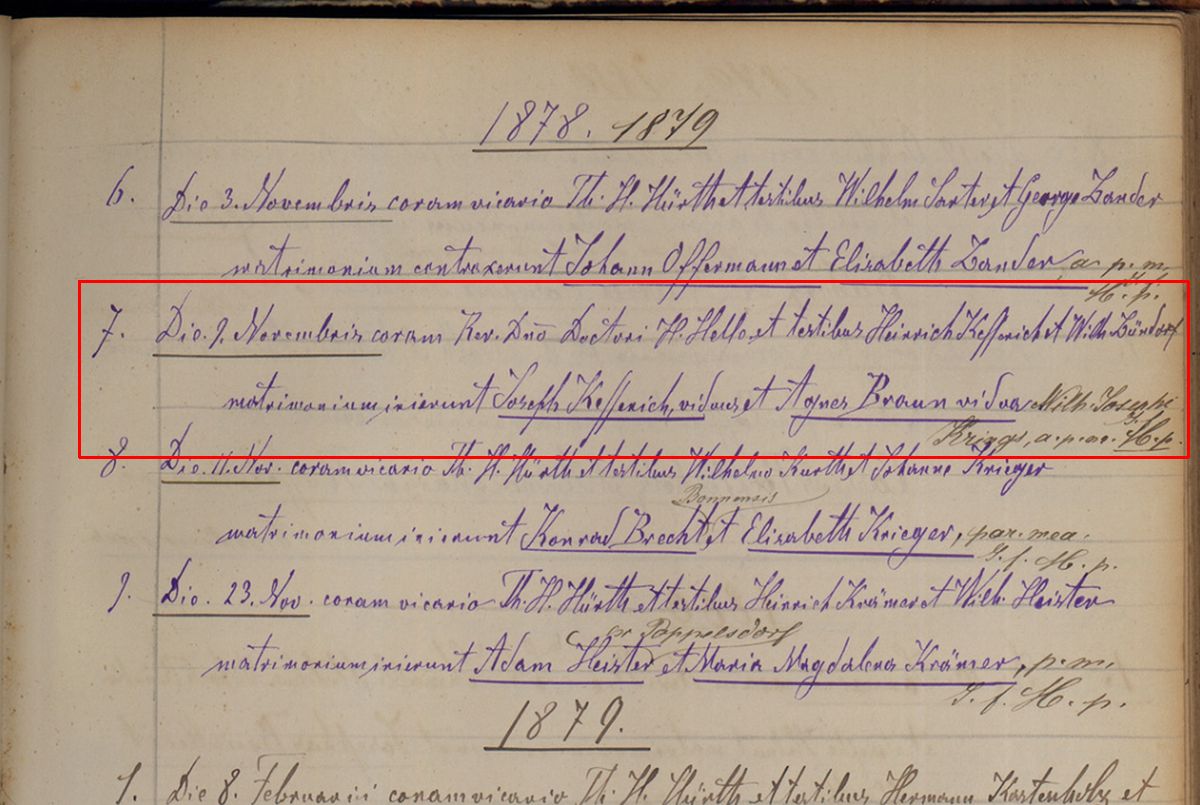 1878. 1879
6. Die 3. Novembris coram vicario Th. H. Hürth et testibus Wilhelm Sarter et George Zander
matrimonium contraxerunt Johann Offermann et Elisabeth Zander, a p. m.
H. p.
7. Die 9. Novembris coram Rev. Dno Doctori H. Hello et testibus Heinrich Kesserich et Wilh.
matrimonium inierunt Joseph Kesserich, viduus et Agnes Braun vidua Wilh. Josephi
Krings, a. p. m. H. p.
8. Die 11. Nov. coram vicario Th. H. Hürth et testibus Wilhelmo Kurth et Johanne Krieger
Bonnensis
matrimonium inierunt Konrad Brecht et Elisabeth Krieger, par. mea.
J. f. H. p.
9. Die 23. Nov. coram vicario Th. H. Hürth et testibus Heinrich Krämer et Wilh. Heister
Poppelsdorf
matrimonium inierunt Adam Heister et Maria Magdalena Krämer, p. m.
J. f. H. p.
1879.
1. Die 8. Februarii coram vicario Th. H. Hürth et testibus Hermann Kastenholz et